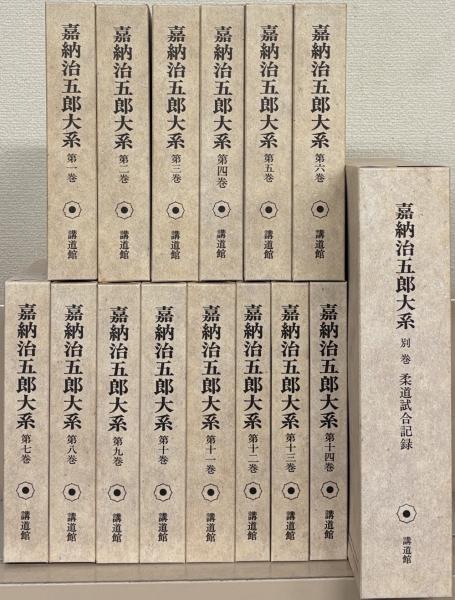 嘉納治五郎大系 第一巻 講道館
嘉納治五郎大系 第二巻 講道館
嘉納治五郎大系 第三巻 講道館
嘉納治五郎大系 第四巻 講道館
嘉納治五郎大系 第五巻 講道館
嘉納治五郎大系 第六巻 講道館
嘉納治五郎大系 第七巻 講道館
嘉納治五郎大系 第八巻 講道館
嘉納治五郎大系 第九巻 講道館
嘉納治五郎大系 第十巻 講道館
嘉納治五郎大系 第十一巻 講道館
嘉納治五郎大系 第十二巻 講道館
嘉納治五郎大系 第十三巻 講道館
嘉納治五郎大系 第十四巻 講道館
嘉納治五郎大系 別巻 柔道試合記録 講道館